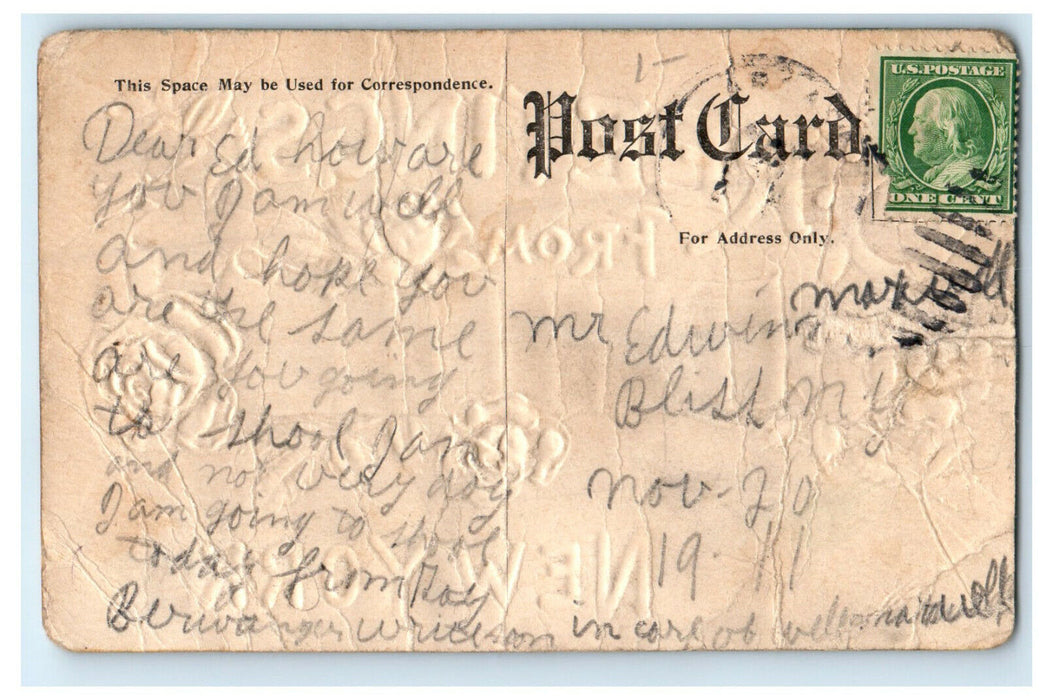 This Space May be Used for Correspondence.
Post Card
U.S. POSTAGE
ONE CENT
For Address Only.
Dear Ed how are
you I am well
and hope you
are the same
are you going
to shool I am
and not very day
I am going to shool
today from Roy
Berwanger write soon in care of
Mr Edwin Maxwell
Bliss N Y
Nov - 20
19 - 11
GREETINGS
FROM
NEW YORK